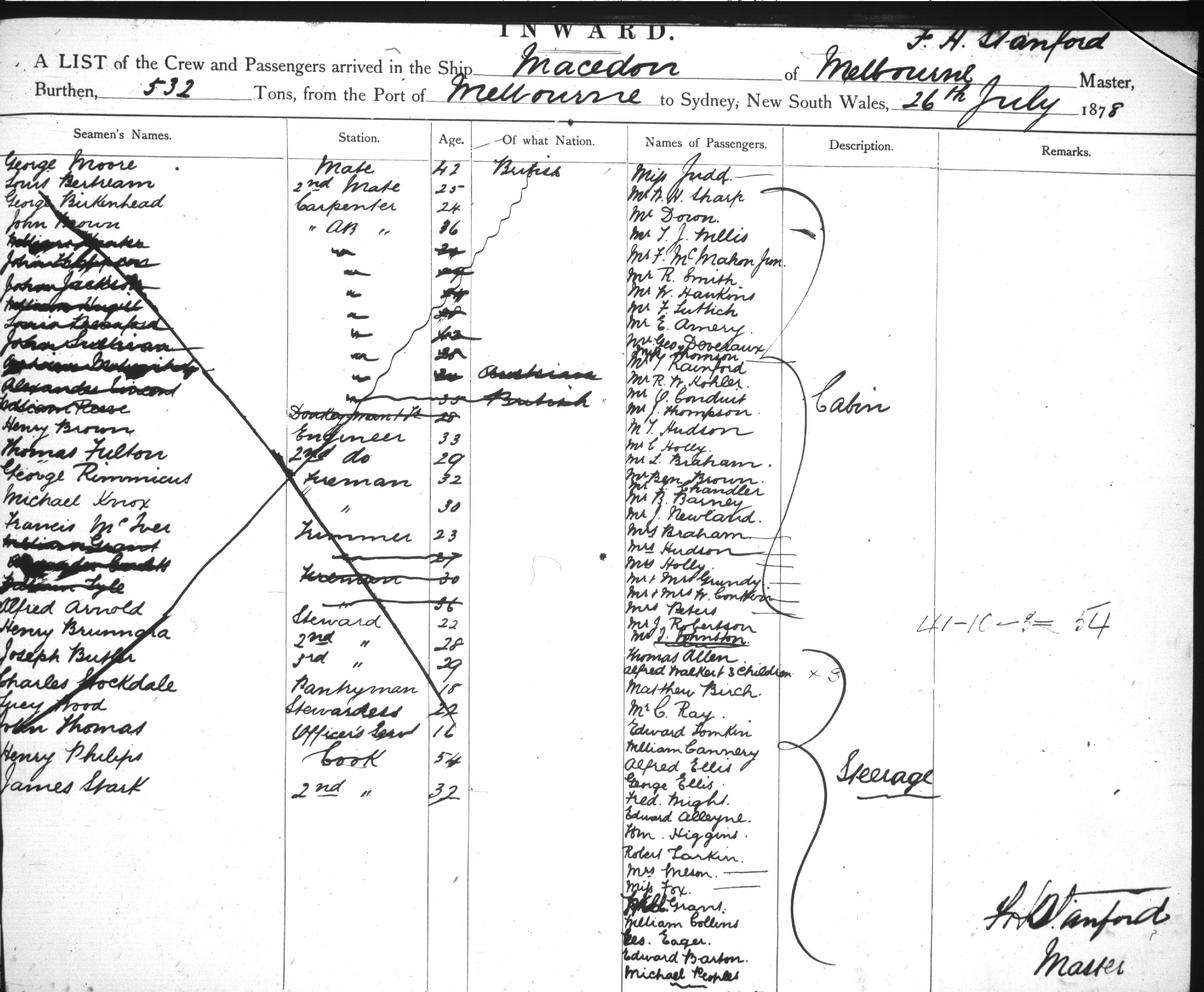 INWARD.
F. H. Stanford
A LIST of the Crew and Passengers arrived in the Ship Macedon of Melbourne Master,
Burthen, 532 Tons, from the Port of Melbourne to Sydney, New South Wales, 26th July 1878
Seamen's Names. Station. Age. Of what Nation. Names of Passengers. Description. Remarks.
George Moore Mate 42 British
Louis Bertream 2nd Mate 25
George Birkenhead Carpenter 24
John Brown " AB " 36
John Jackson "
John Sullivan "
" Austrian
Alexander " 30 British
William Reese Donkeyman 28
Henry Brown Engineer 33
Thomas Fulton 2nd do 29
George Rimmicus Fireman 32
Michael Knox " 30
Francis McIver Trimmer 23
William Grant 27
Fireman 30
William Lyle " 36
Alfred Arnold Steward 22
Henry Brunngra 2nd " 28
Joseph Butler 3rd " 29
Charles Stockdale Pantryman 18
Lucy Wood Stewardess 22
John Thomas Officers Servt 16
Henry Philips Cook 54
James Stark 2nd " 32
Miss Judd
Mr W. W. Sharp
Mr Down.
Mr T. J. Willis
Mr F. McMahon Jun.
Mr R. Smith
Mr W. Hawkins
Mr F. Luttich
Mr E. Amery.
Mr Geo Deveraux
Thomson
Mr Rainford
Mr R. W. Kohler.
Mr J. Conduit
Mr J. Thompson.
Mr T. Hudson
Mr E. Holly.
Mr L. Braham.
Mr Ben Brown.
Mr Chandler
Mr B. Barney
Mr J. Newland.
Mrs Braham
Mrs Hudson
Mrs Holly
Mr & Mrs Grundy
Mr & Mrs W.
Mrs Peters
Mr J. Robertson
Mr J. Johnston
Cabin
Thomas Allen.
Alfred Walker & 3 Children × 3
Matthew Birch.
Mr C. Ray.
Edward Tomkin
William Cannery
Alfred Ellis
George Ellis.
Fred. Wright.
Edward Alleyne.
Wm. Higgins.
Robert Larkin.
Mrs
Miss Fox.
Grant.
William Collins
Eager.
Edward Barton.
Michael Peoples
Steerage
41-10-3= 54
F H Stanford
Master